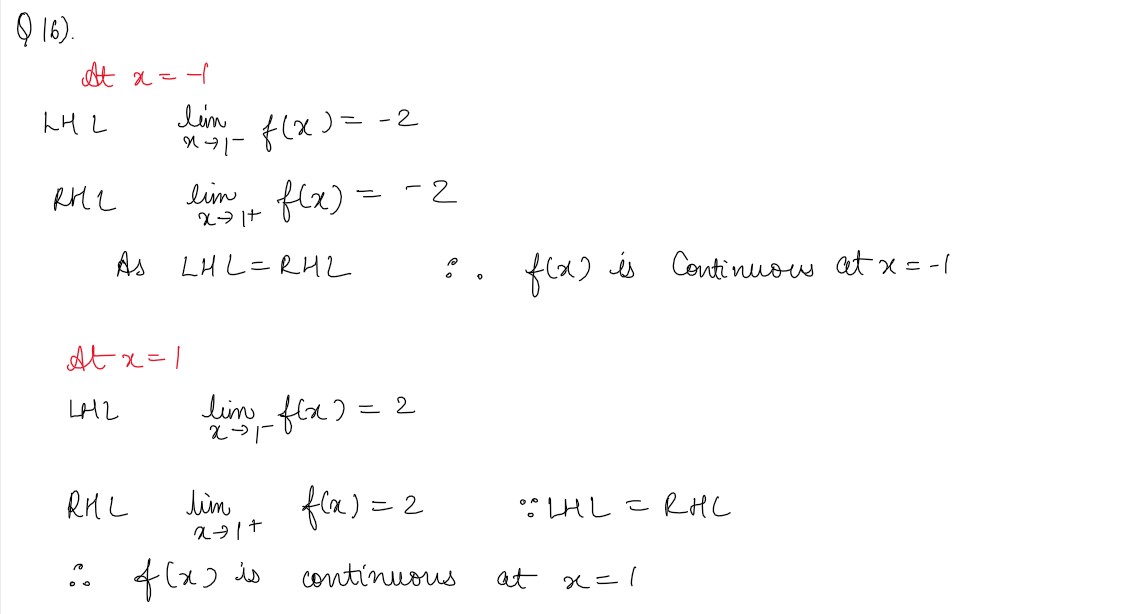 Q 16).
At x = -1
LHL lim x→1⁻ f(x) = -2
RHL lim x→1+ f(x) = -2
As LHL = RHL ∴ f(x) is Continuous at x = -1
At x = 1
LHL lim x→1⁻ f(x) = 2
RHL lim x→1+ f(x) = 2 ∵ LHL = RHL
∴ f(x) is continuous at x = 1